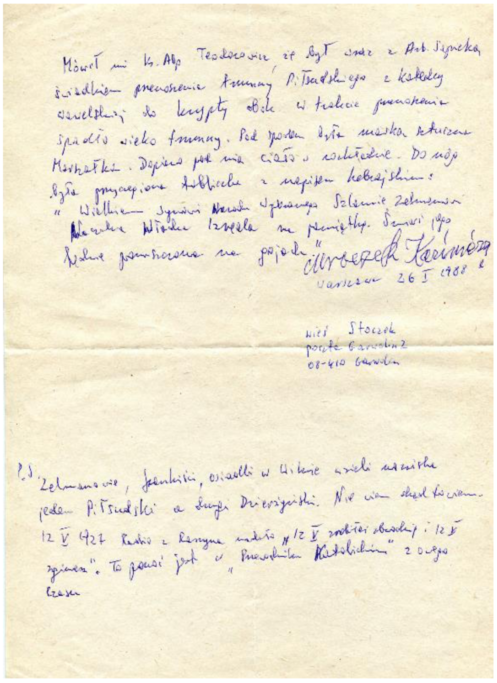 Mówił mi ks. Abp Teodorowicz, że był wraz z Arb. Sapiehą
świadkiem przenoszenia trumny Piłsudskiego z katedry
wawelskiej do krypty obok w trakcie przenoszenia
spadło wieko trumny. Pod spodem była maska sztuczna
Marszałka. Dopiero pod nią ciało w rozkładzie. Do nogi
była przyczepiona tabliczka z napisem hebrajskim:
"Wielkiemu Synowi Narodu Wybranego Szlomie Zelmanowi
Władcy Izraela na pamiątkę. Śmierć jego
będzie pomszczona na gojach."
Kazimierz
Warszawa 26 I 1988 r
wieś Stoczek
poczta Garwolin 2
08-410 Garwolin
P.S.
Zelmanowie, frankiści, osiadli w Wilnie wzięli nazwiska
jeden Piłsudski a drugi Dzierżyński. Nie wiem skąd
12 V 1927 Radio z Raszyna nadało "12 V zrobiłeś i 12 V
zginiesz". To ponoć jest w "Przewodniku Katolickim" z owego
czasu